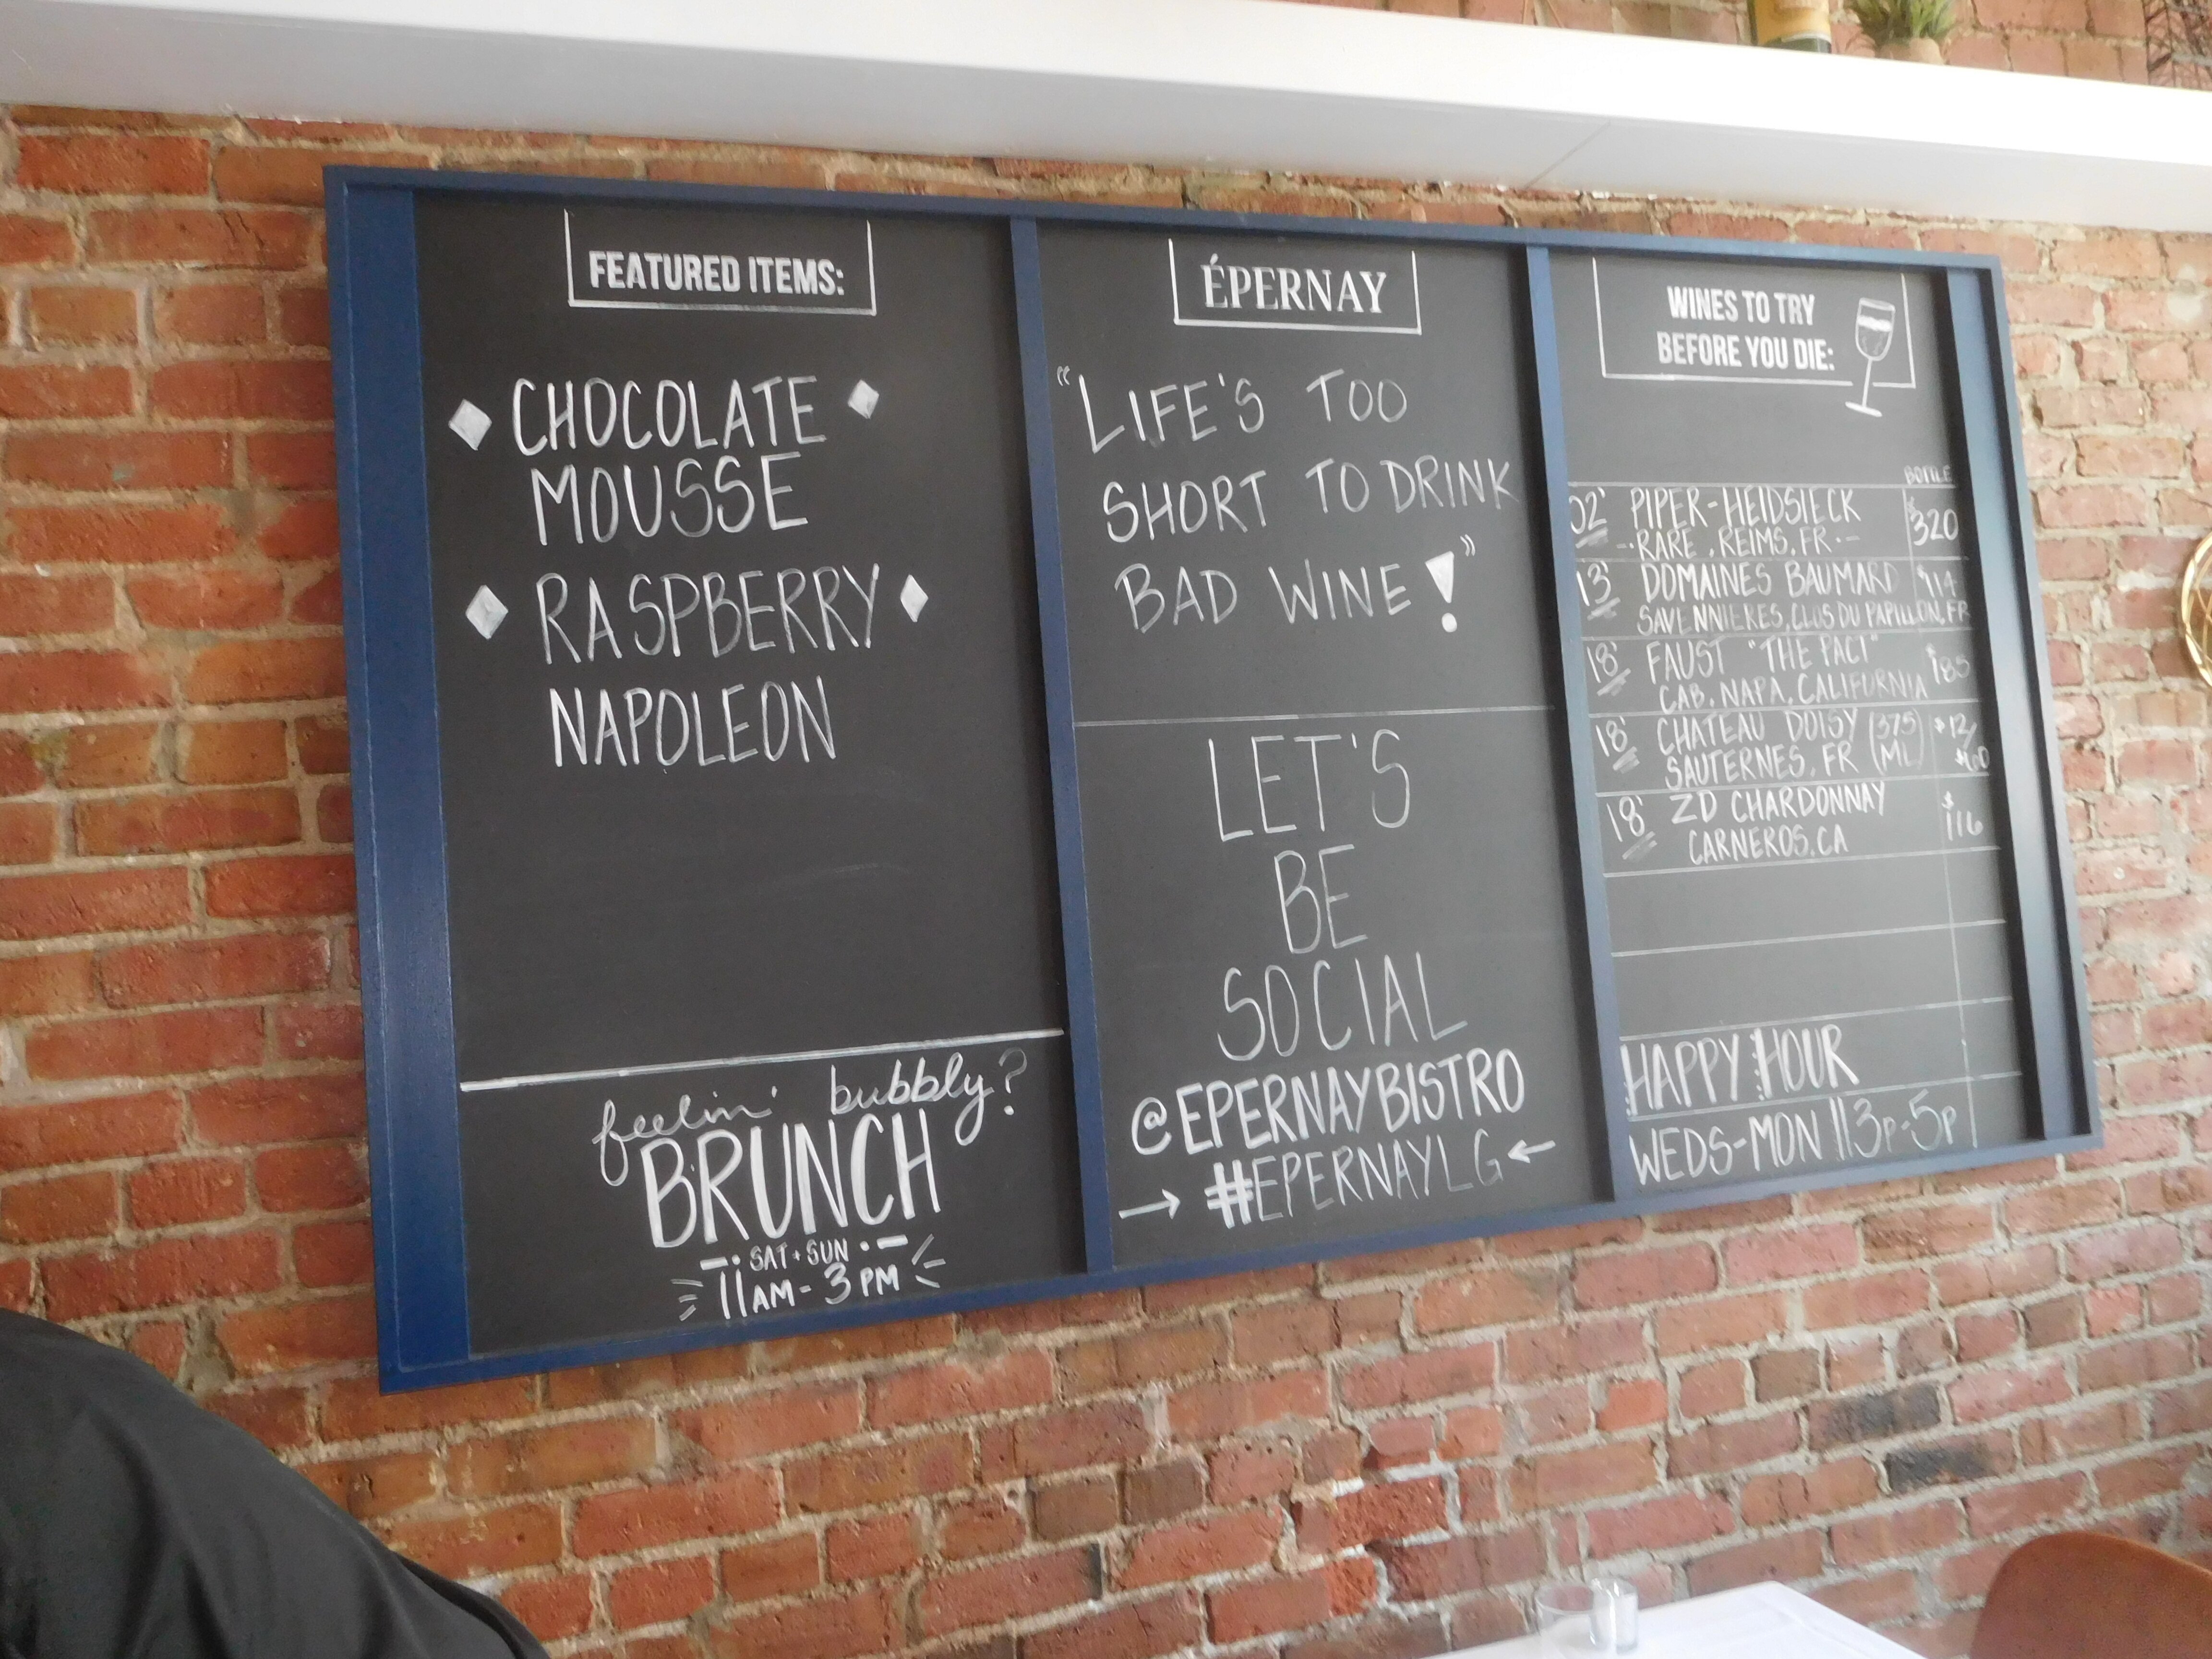 FEATURED ITEMS:
CHOCOLATE
MOUSSE
RASPBERRY
NAPOLEON
feelin' bubbly?
BRUNCH
SAT + SUN
11AM - 3 PM
ÉPERNAY
"LIFE'S TOO
SHORT TO DRINK
BAD WINE!"
LET'S
BE
SOCIAL
@EPERNAYBISTRO
→ #EPERNAYLG ←
WINES TO TRY
BEFORE YOU DIE:
BOTTLE
02' PIPER-HEIDSIECK $320
RARE, REIMS, FR
13' DOMAINES BAUMARD $114
SAVENNIERES, CLOS DU PAPILLON, FR
18' FAUST "THE PACT" $185
CAB, NAPA, CALIFORNIA
18' CHATEAU DOISY (375 $12/
SAUTERNES, FR ML) $60
18' ZD CHARDONNAY $116
CARNEROS, CA
HAPPY HOUR
WEDS-MON || 3P-5P